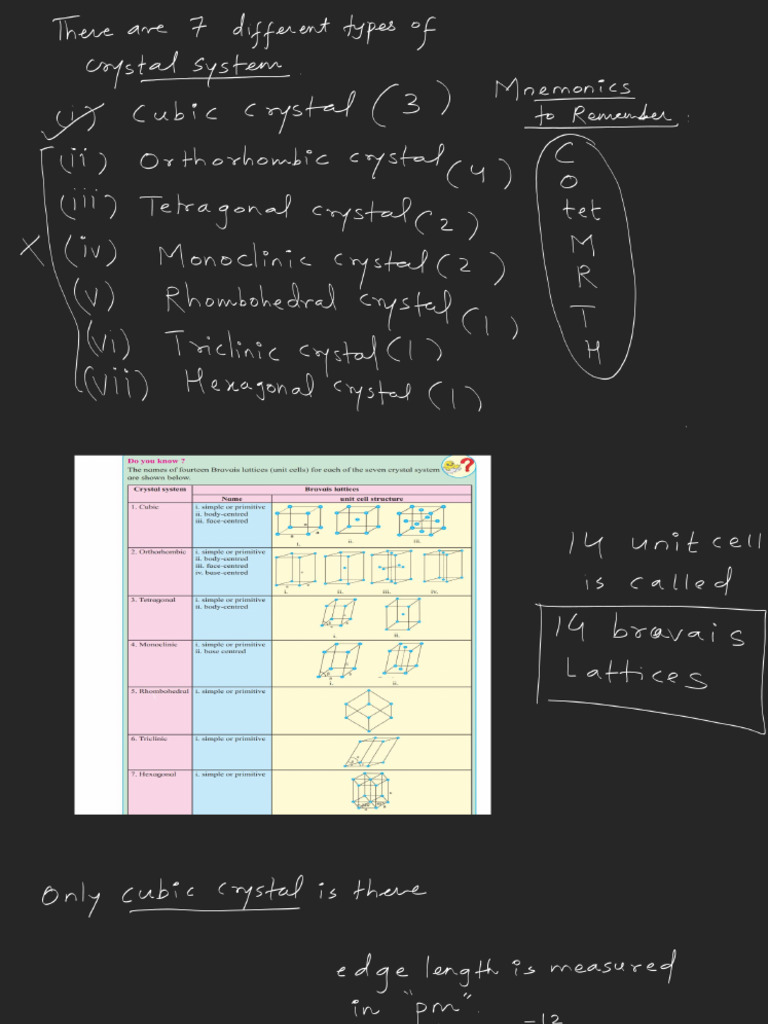 There are 7 different types of
crystal system
(i) Cubic crystal (3)
(ii) Orthorhombic crystal (4)
(iii) Tetragonal crystal (2)
(iv) Monoclinic crystal (2)
(v) Rhombohedral crystal (1)
(vi) Triclinic crystal (1)
(vii) Hexagonal crystal (1)
Mnemonics
to Remember
C
O
tet
M
R
T
H
Do you know ?
The names of fourteen Bravais lattices (unit cells) for each of the seven crystal system
are shown below.
Crystal system Bravais lattices
Name unit cell structure
1. Cubic
i. simple or primitive
ii. body-centred
iii. face-centred
i. ii. iii.
2. Orthorhombic
i. simple or primitive
ii. body-centred
iii. face-centred
iv. base-centred
i. ii. iii. iv.
3. Tetragonal
i. simple or primitive
ii. body-centred
i. ii.
4. Monoclinic
i. simple or primitive
ii. base centred
i. ii.
5. Rhombohedral
i. simple or primitive
6. Triclinic
i. simple or primitive
7. Hexagonal
i. simple or primitive
14 unit cell
is called
14 bravais
Lattices
Only cubic crystal is there
edge length is measured
in "pm".
-12